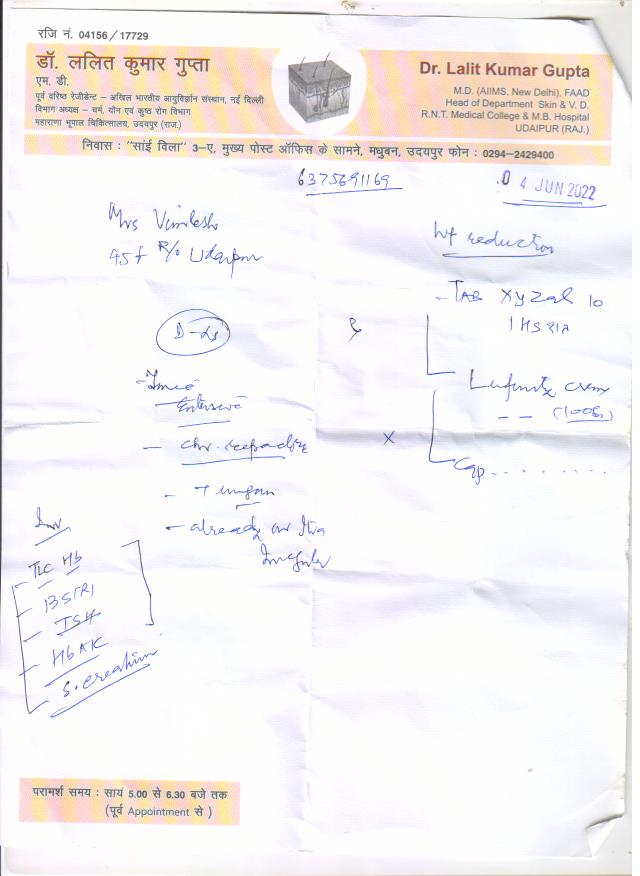 रजि नं. 04156 / 17729
डॉ. ललित कुमार गुप्ता
एम. डी.
पूर्व वरिष्ठ रेजीडेन्ट – अखिल भारतीय आयुर्विज्ञान संस्थान, नई दिल्ली
विभाग अध्यक्ष – चर्म, यौन एवं कुष्ठ रोग विभाग
महाराणा भूपाल चिकित्सालय, उदयपुर (राज.)
Dr. Lalit Kumar Gupta
M.D. (AIIMS, New Delhi), FAAD
Head of Department Skin & V. D.
R.N.T. Medical College & M.B. Hospital
UDAIPUR (RAJ.)
निवास : "सांई विला" 3-ए, मुख्य पोस्ट ऑफिस के सामने, मधुबन, उदयपुर फोन : 0294-2429400
6375691169
04 JUN 2022
Mrs Vimlesh
45 f R/o Udaipur
wt reduction
- TAB Xyzal 10
1 HS
cream
(100g)
Cap . . . . . . . .
- Extensive
-
- already on Itra
Irregular
Inv
TLC Hb
TSH
S. creatinine
परामर्श समय : सायं 5.00 से 6.30 बजे तक
(पूर्व Appointment से )